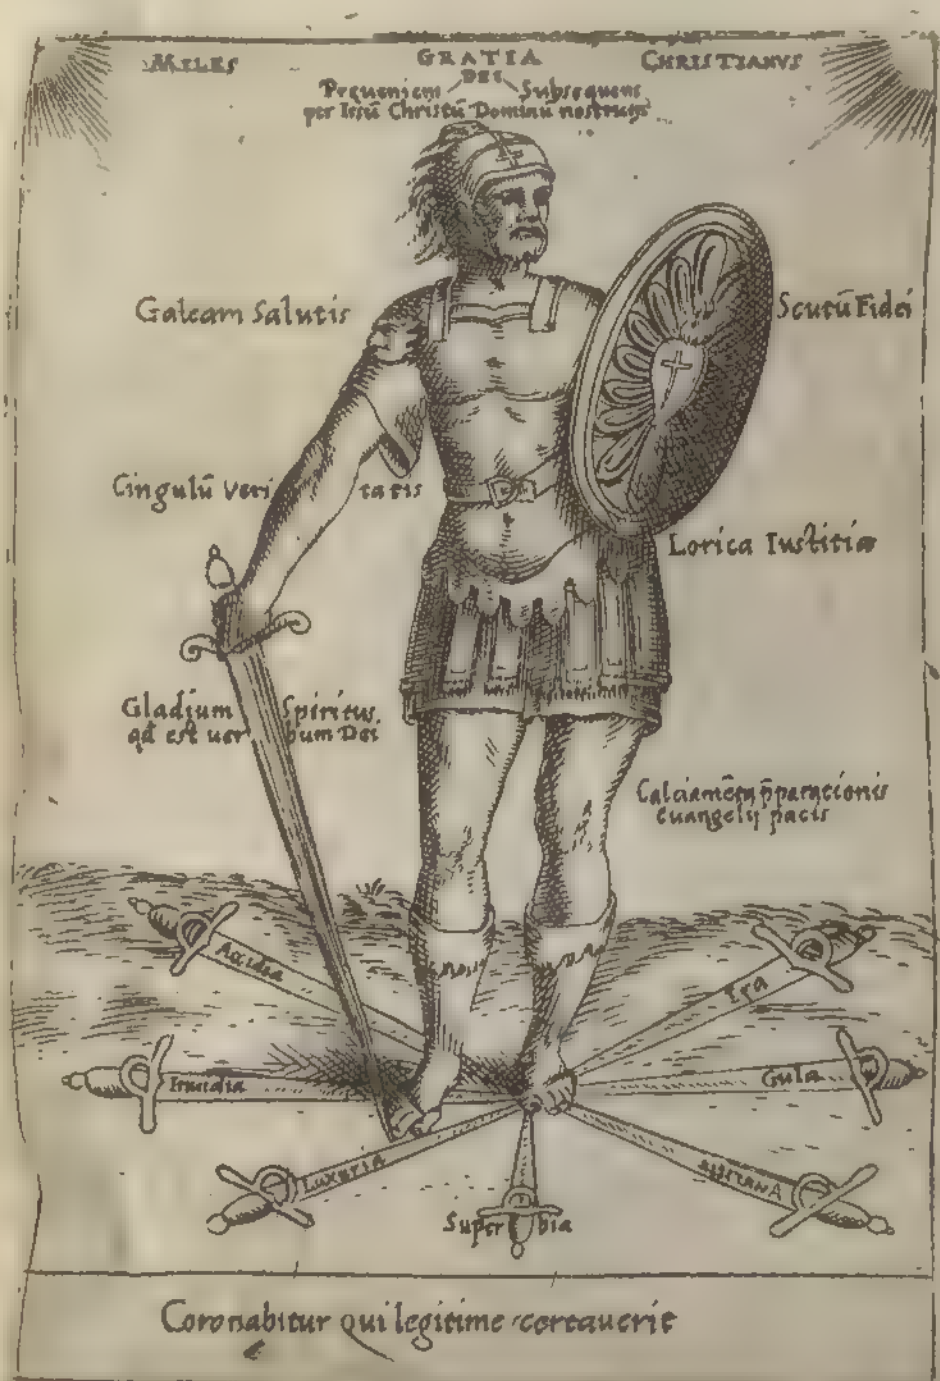 MILES
GRATIA
DEI
CHRISTIANVS
Preueniens Subsequens
per Iesū Christū Dominū nostrum
Galeam Salutis
Scutū Fidei
Cingulū Veri tatis
Lorica Iustitiæ
Gladium Spiritus
qd est uer bum Dei
euangelij pacis
Accidia
Ira
Inuidia
Gula
LUXURIA
Super bia
Coronabitur qui legitime certauerit